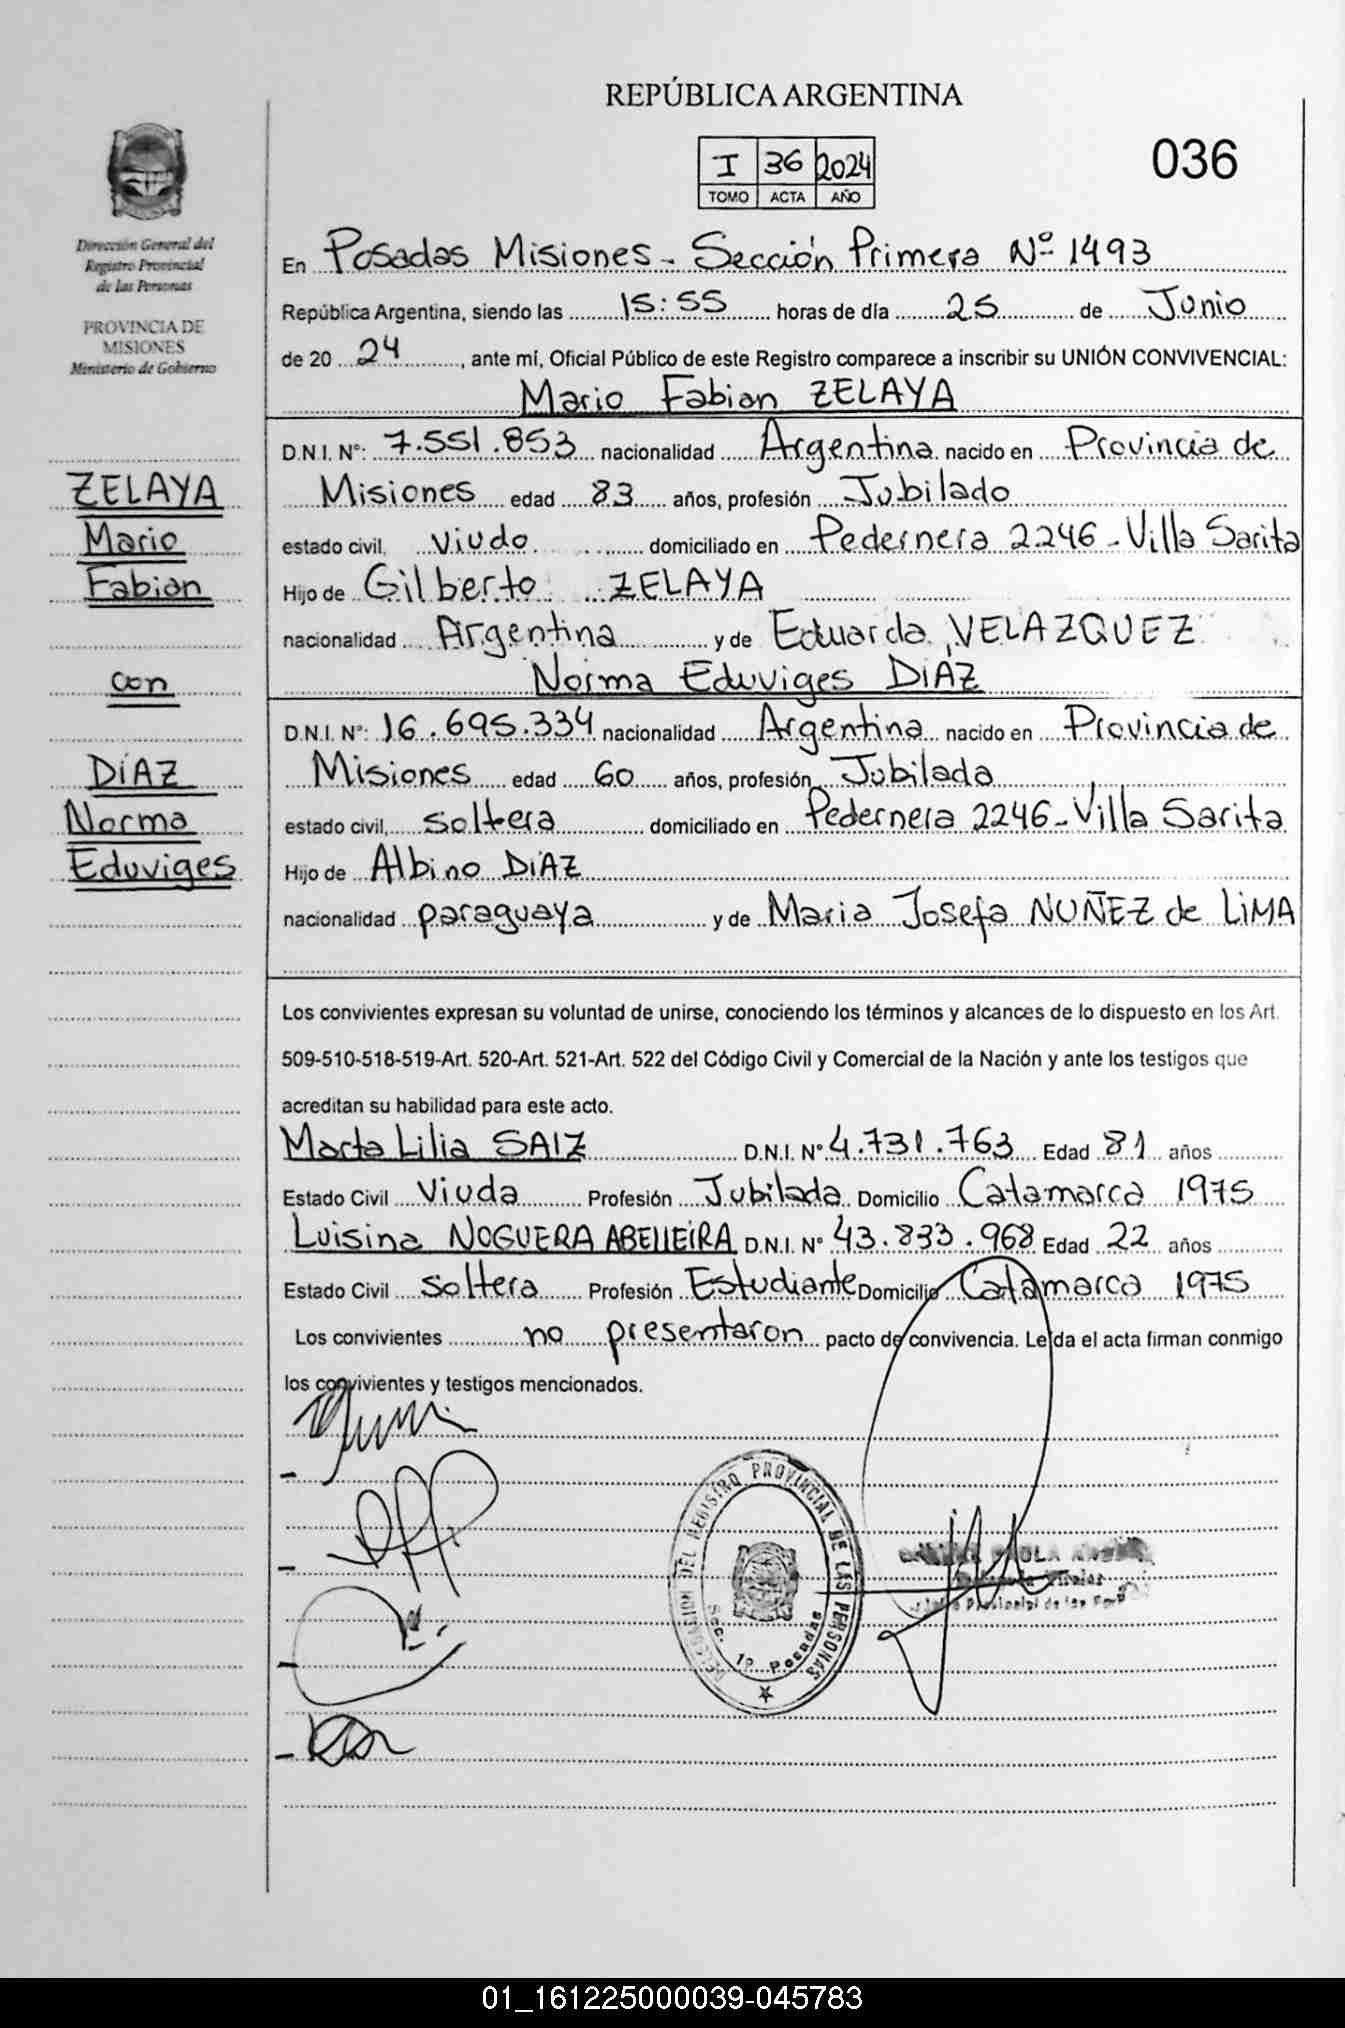 REPÚBLICA ARGENTINA
I 36 2024
TOMO ACTA AÑO
036
Dirección General del
Registro Provincial
de las Personas
PROVINCIA DE
MISIONES
Ministerio de Gobierno
ZELAYA
Mario
Fabian
con
DÍAZ
Norma
Eduviges
En Posadas Misiones - Sección Primera Nº 1493
República Argentina, siendo las 15:55 horas de día 25 de Junio
de 20 24, ante mí, Oficial Público de este Registro comparece a inscribir su UNIÓN CONVIVENCIAL:
Mario Fabian ZELAYA
D.N.I. Nº: 7.551.853 nacionalidad Argentina nacido en Provincia de
Misiones edad 83 años, profesión Jubilado
estado civil, Viudo domiciliado en Pedernera 2246 - Villa Sarita
Hijo de Gilberto ZELAYA
nacionalidad Argentina y de Eduarda VELAZQUEZ
Norma Eduviges DIAZ
D.N.I. Nº: 16.695.334 nacionalidad Argentina nacido en Provincia de
Misiones edad 60 años, profesión Jubilada
estado civil, soltera domiciliado en Pedernera 2246 - Villa Sarita
Hijo de Albino DIAZ
nacionalidad paraguaya y de Maria Josefa NUÑEZ de LiMA
Los convivientes expresan su voluntad de unirse, conociendo los términos y alcances de lo dispuesto en los Art.
509-510-518-519-Art. 520-Art. 521-Art. 522 del Código Civil y Comercial de la Nación y ante los testigos que
acreditan su habilidad para este acto.
Marta Lilia SAIZ D.N.I. Nº 4.731.763 Edad 81 años
Estado Civil Viuda Profesión Jubilada Domicilio Catamarca 1975
Luisina NOGUERA ABELLEIRA D.N.I. Nº 43.833.968 Edad 22 años
Estado Civil soltera Profesión Estudiante Domicilio Catamarca 1975
Los convivientes no presentaron pacto de convivencia. Leída el acta firman conmigo
los convivientes y testigos mencionados.
DELEGACION DEL REGISTRO PROVINCIAL DE LAS PERSONAS
Sec. 1º Posadas
01_161225000039-045783